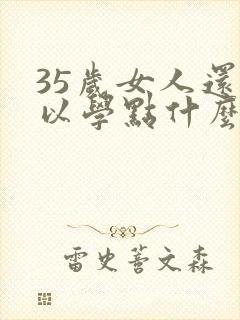 35歲女人還
以學點什麼
雷史善文森